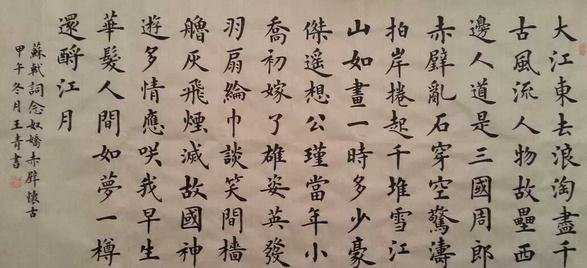 大江東去浪淘盡千
古風流人物故壘西
邊人道是三國周郎
赤壁亂石穿空驚濤
拍岸捲起千堆雪江
山如畫一時多少豪
傑遙想公瑾當年小
喬初嫁了雄姿英發
羽扇綸巾談笑間檣
艣灰飛煙滅故國神
遊多情應咲我早生
華髮人間如夢一樽
還酹江月
蘇軾詞念奴嬌赤壁懷古
甲午冬月王青書